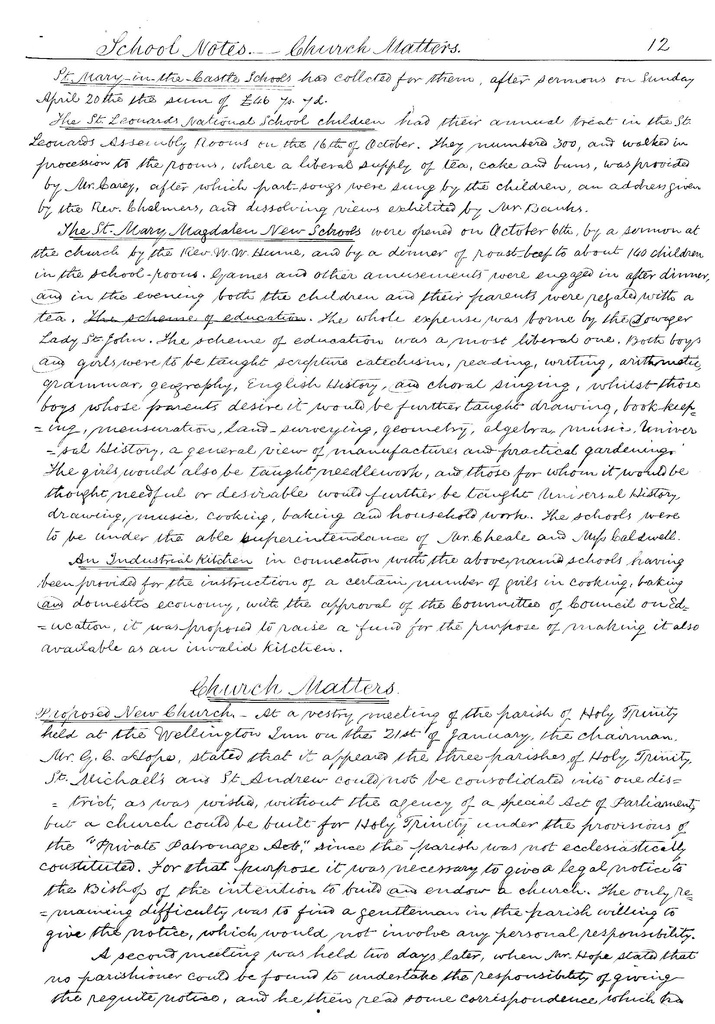 School Notes. — Church Matters. 12
St. Mary-in-the-Castle Schools had collcted for them, after sermons on Sunday
April 20th the the sum of £46 7s. 7d.
The St. Leonards National School children had their annual treat in the St
Leonards Assembly Rooms on the 16th of October. They numbered 300, and walked in
procession to the rooms, where a liberal supply of tea, cake and buns, was provided
by Mr. Carey, after which part-songs were sung by the children, an address given
by the Rev. Chalmers, and dissolving views exhibited by Mr Banks.
The St. Mary Magdalen New Schools were opened on October 6th, by a sermon at
the church by the Rev. W. W. Hume, and by a dinner of roast-beef to about 140 children
in the school-rooms. Games and other amusements were engaged in after dinner,
and in the evening both the children and their parents were regaled with a
tea. The scheme of education. The whole expense was borne by the Dowager
Lady St. John. The scheme of education was a most liberal one. Both boys
and girls were to be taught scripture catechism, reading, writing, arithmetic,
grammar, geography, English History, and choral singing, whilst those
boys whose parents desire it would be further taught drawing, book keep-
-ing, mensuration, land-surveying, geometry, algebra, music, Univer
-sal History, a general view of manufactures and practical gardening.
The girls would also be taught needlework, and those for whom it would be
thought needful or desirable would further be taught Universal History,
drawing, music, cooking, baking and household work. The schools were
to be under the able superintendance of Mr. Cheale and Miss Caldwell.
An Industrial Kitchen in connection with the above named schools having
been provided for the instruction of a certain number of girls in cooking, baking
and domestic economy, with the approval of the Committee of Council on Ed-
-ucation, it was proposed to raise a fund for the purpose of making it also
available as an invalid kitchen.
Church Matters.
Proposed New Church. - At a vestry meeting of the parish of Holy Trinity
held at the Wellington Inn on the 21st of January, the chairman.
Mr. G. C. Hope, stated that it appeared the three parishes of Holy Trinity,
St. Michael's and St Andrew could not be consolidated into one dis=
= trict, as was wished, without the agency of a special Act of Parliament,
but a church could be built for Holy Trinity under the provisions of
the "Private Patronage Act," since the parish was not ecclesiastically
constituted. For that purpose it was necessary to give a legal notice to
the Bishop of the intention to build and endow a church. The only re=
=maining difficulty was to find a gentleman in the parish willing to
give the notice, which would not involve any personal responsibility.
A second meeting was held two days later, when Mr. Hope stated that
no parishioner could be found to undertake the responsibility of giving
the requite notice, and he then read some correspondence which ha